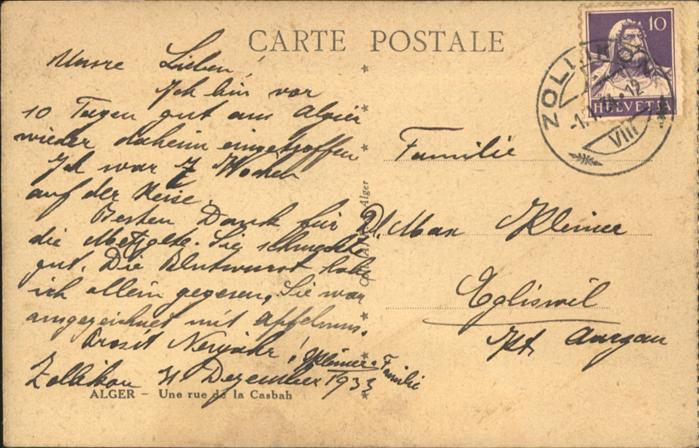 CARTE POSTALE
Unsre Lieben!
Ich bin vor
10 Tagen gut aus Algier
wieder daheim eingetroffen
Ich war 7 Wochen
auf der Reise.
Besten Dank für
die Metzgete. Sie schmeckte
gut. Die Blutwurst habe
ich allein gegessen. Sie war
ausgezeichnet mit Apfelmus.
Prosit Neujahr! Kleiner-Familie
Zollikon 31 Dezember 1933
ALGER – Une rue de la Casbah
Alger
10
HELVETIA
ZOLLIKON
-1. 12
VIII
Familie
Max Kleiner
Egliswil
Kt. Aargau